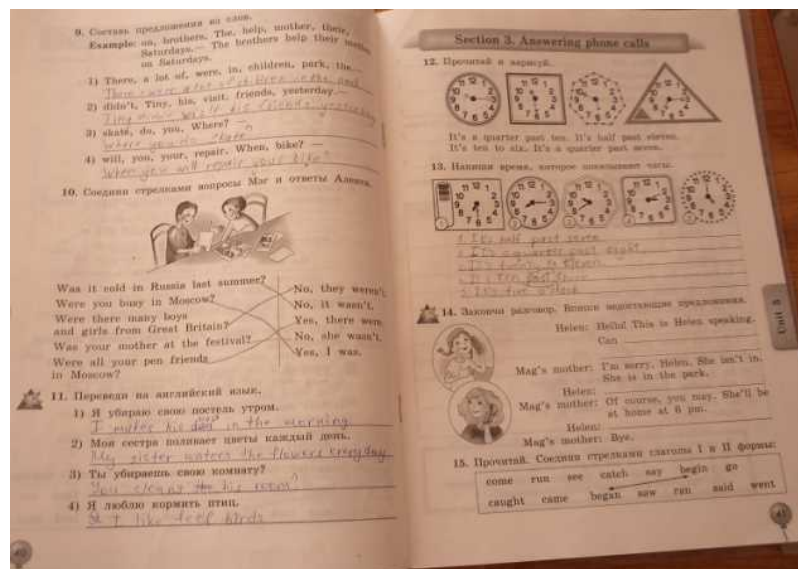 9. Составь предложения из слов.
Example: on, brothers, The, help, mother, their,
Saturdays.— The brothers help their mother
on Saturdays.
1) There, a lot of, were, in, children, park, the.—
There were a lot of children in the
2) didn't, Tiny, his, visit, friends, yesterday.—
visit his friends yesterday
3) skate, do, you, Where? —
Where you do skate
4) will, you, your, repair, When, bike? —
When you will repair your bike?
10. Соедини стрелками вопросы Мэг и ответы
Was it cold in Russia last summer?
No, they weren't.
Were you busy in Moscow?
No, it wasn't.
Were there many boys
and girls from Great Britain?
Yes, there were.
Was your mother at the festival?
No, she wasn't.
Were all your pen friends
in Moscow?
Yes, I was.
11. Переведи на английский язык.
1) Я убираю свою постель утром.
I his in the morning
2) Моя сестра поливает цветы каждый день.
My sister waters the flowers everyday
3) Ты убираешь свою комнату?
You his room?
4) Я люблю кормить птиц.
I like birds
40
Section 3. Answering phone calls
12. Прочитай и нарисуй.
It's a quarter past ten. It's half past eleven.
It's ten to six. It's a quarter past seven.
13. Напиши время, которое показывают часы.
1. It's half past seven
2. It's quarter past eight
3.
4. ten past
5. It's five o'clock
14. Закончи разговор. Впиши недостающие предложения.
Helen: Hello! This is Helen speaking.
Can
Mag's mother: I'm sorry, Helen. She isn't in.
She is in the park.
Helen:
Mag's mother: Of course, you may. She'll be
at home at 6 pm.
Helen:
Mag's mother: Bye.
15. Прочитай. Соедини стрелками глаголы I и II формы:
come run see catch say begin go
caught came began saw ran said went
Unit 5
41